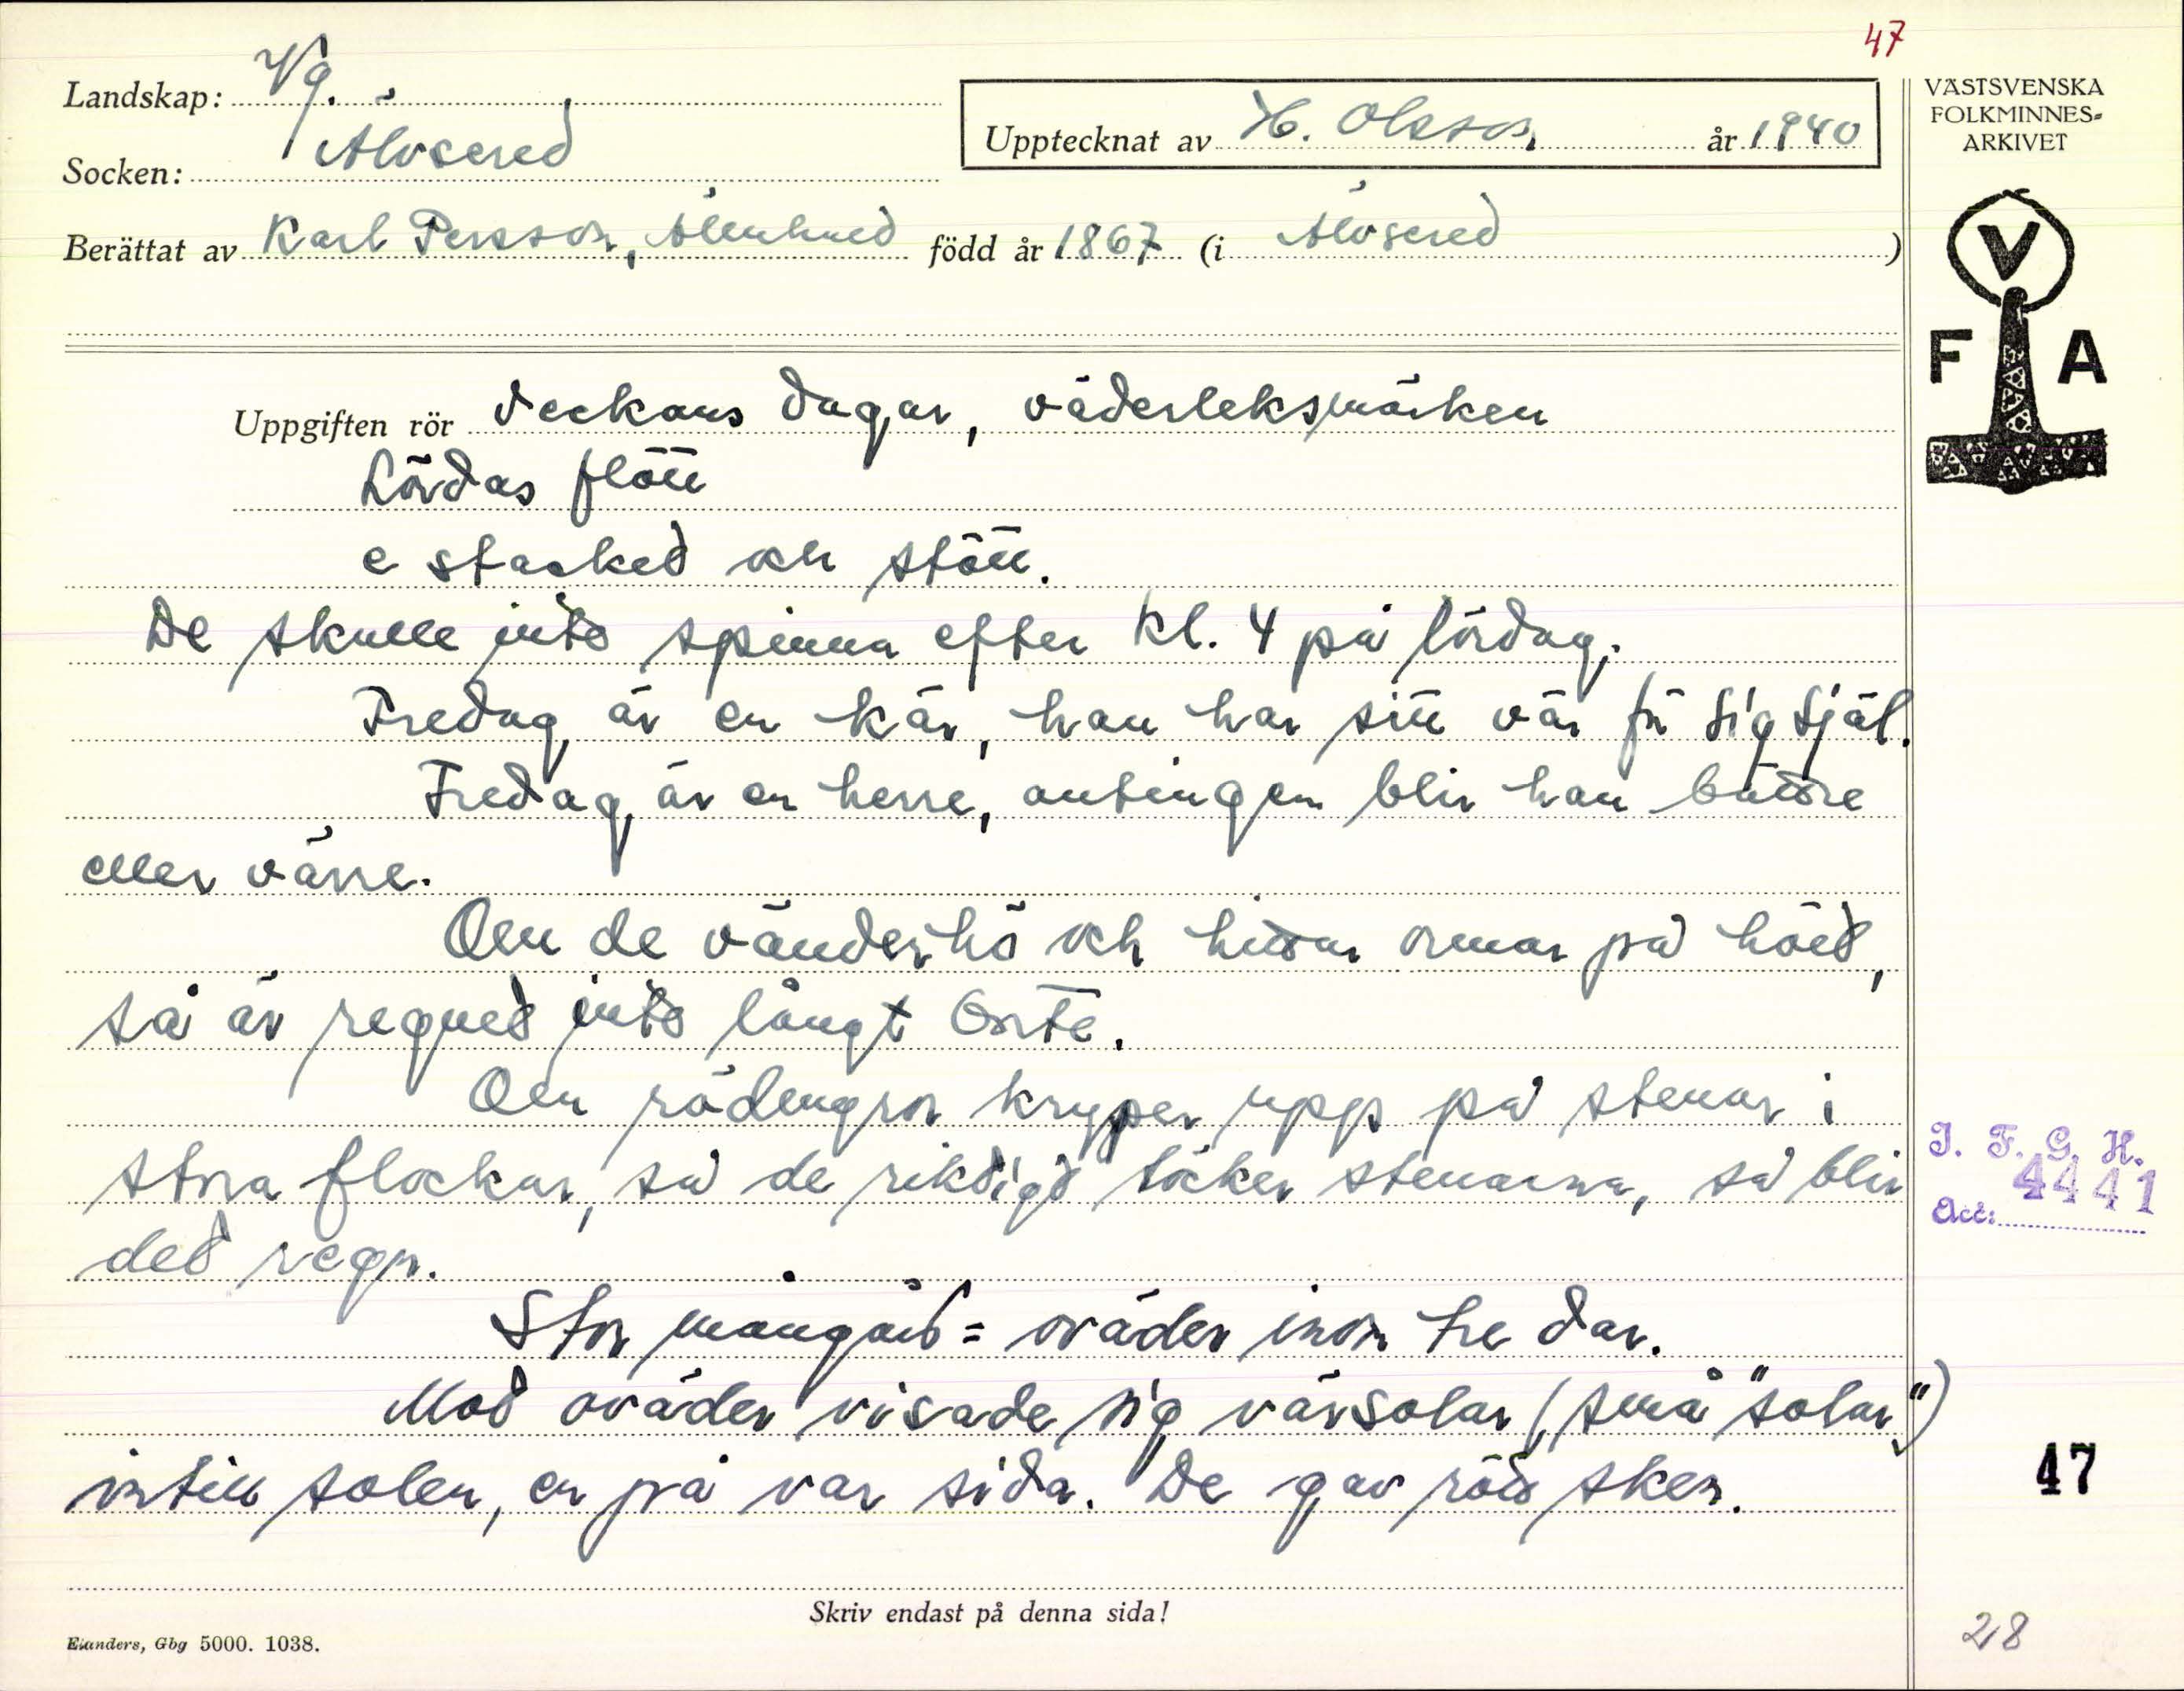 47
Landskap: Vg.
Socken: Älvsered
Upptecknat av H. Olsson år 1940
Berättat av Karl Persson, Älvhult född år 1867 (i Älvsered)
VÄSTSVENSKA
FOLKMINNES-
ARKIVET
V
F A
Uppgiften rör Veckans dagar, väderleksmärken
Lördas flött
e stacked och stött.
De skulle inte spinna efter kl. 4 på lördag.
Fredag är en kär, han har sitt vär för sig själ.
Fredag är en herre, antingen blir han bättre
eller värre.
Om de vänder hö och hittar ormar på höet,
så är regnet inte långt borte.
Om rödmyror kryper upp på stenar i
stora flockar, så de riktigt täcker stenarna, så blir
det regn.
Stor mångård = oväder inom tre dar.
Mot oväder visade sig värsolar (små "solar")
intill solen, en på var sida. De gav rött sken.
I. F. G. H.
Acc: 4441
47
Skriv endast på denna sida!
Elanders, Gbg 5000. 1038.
28